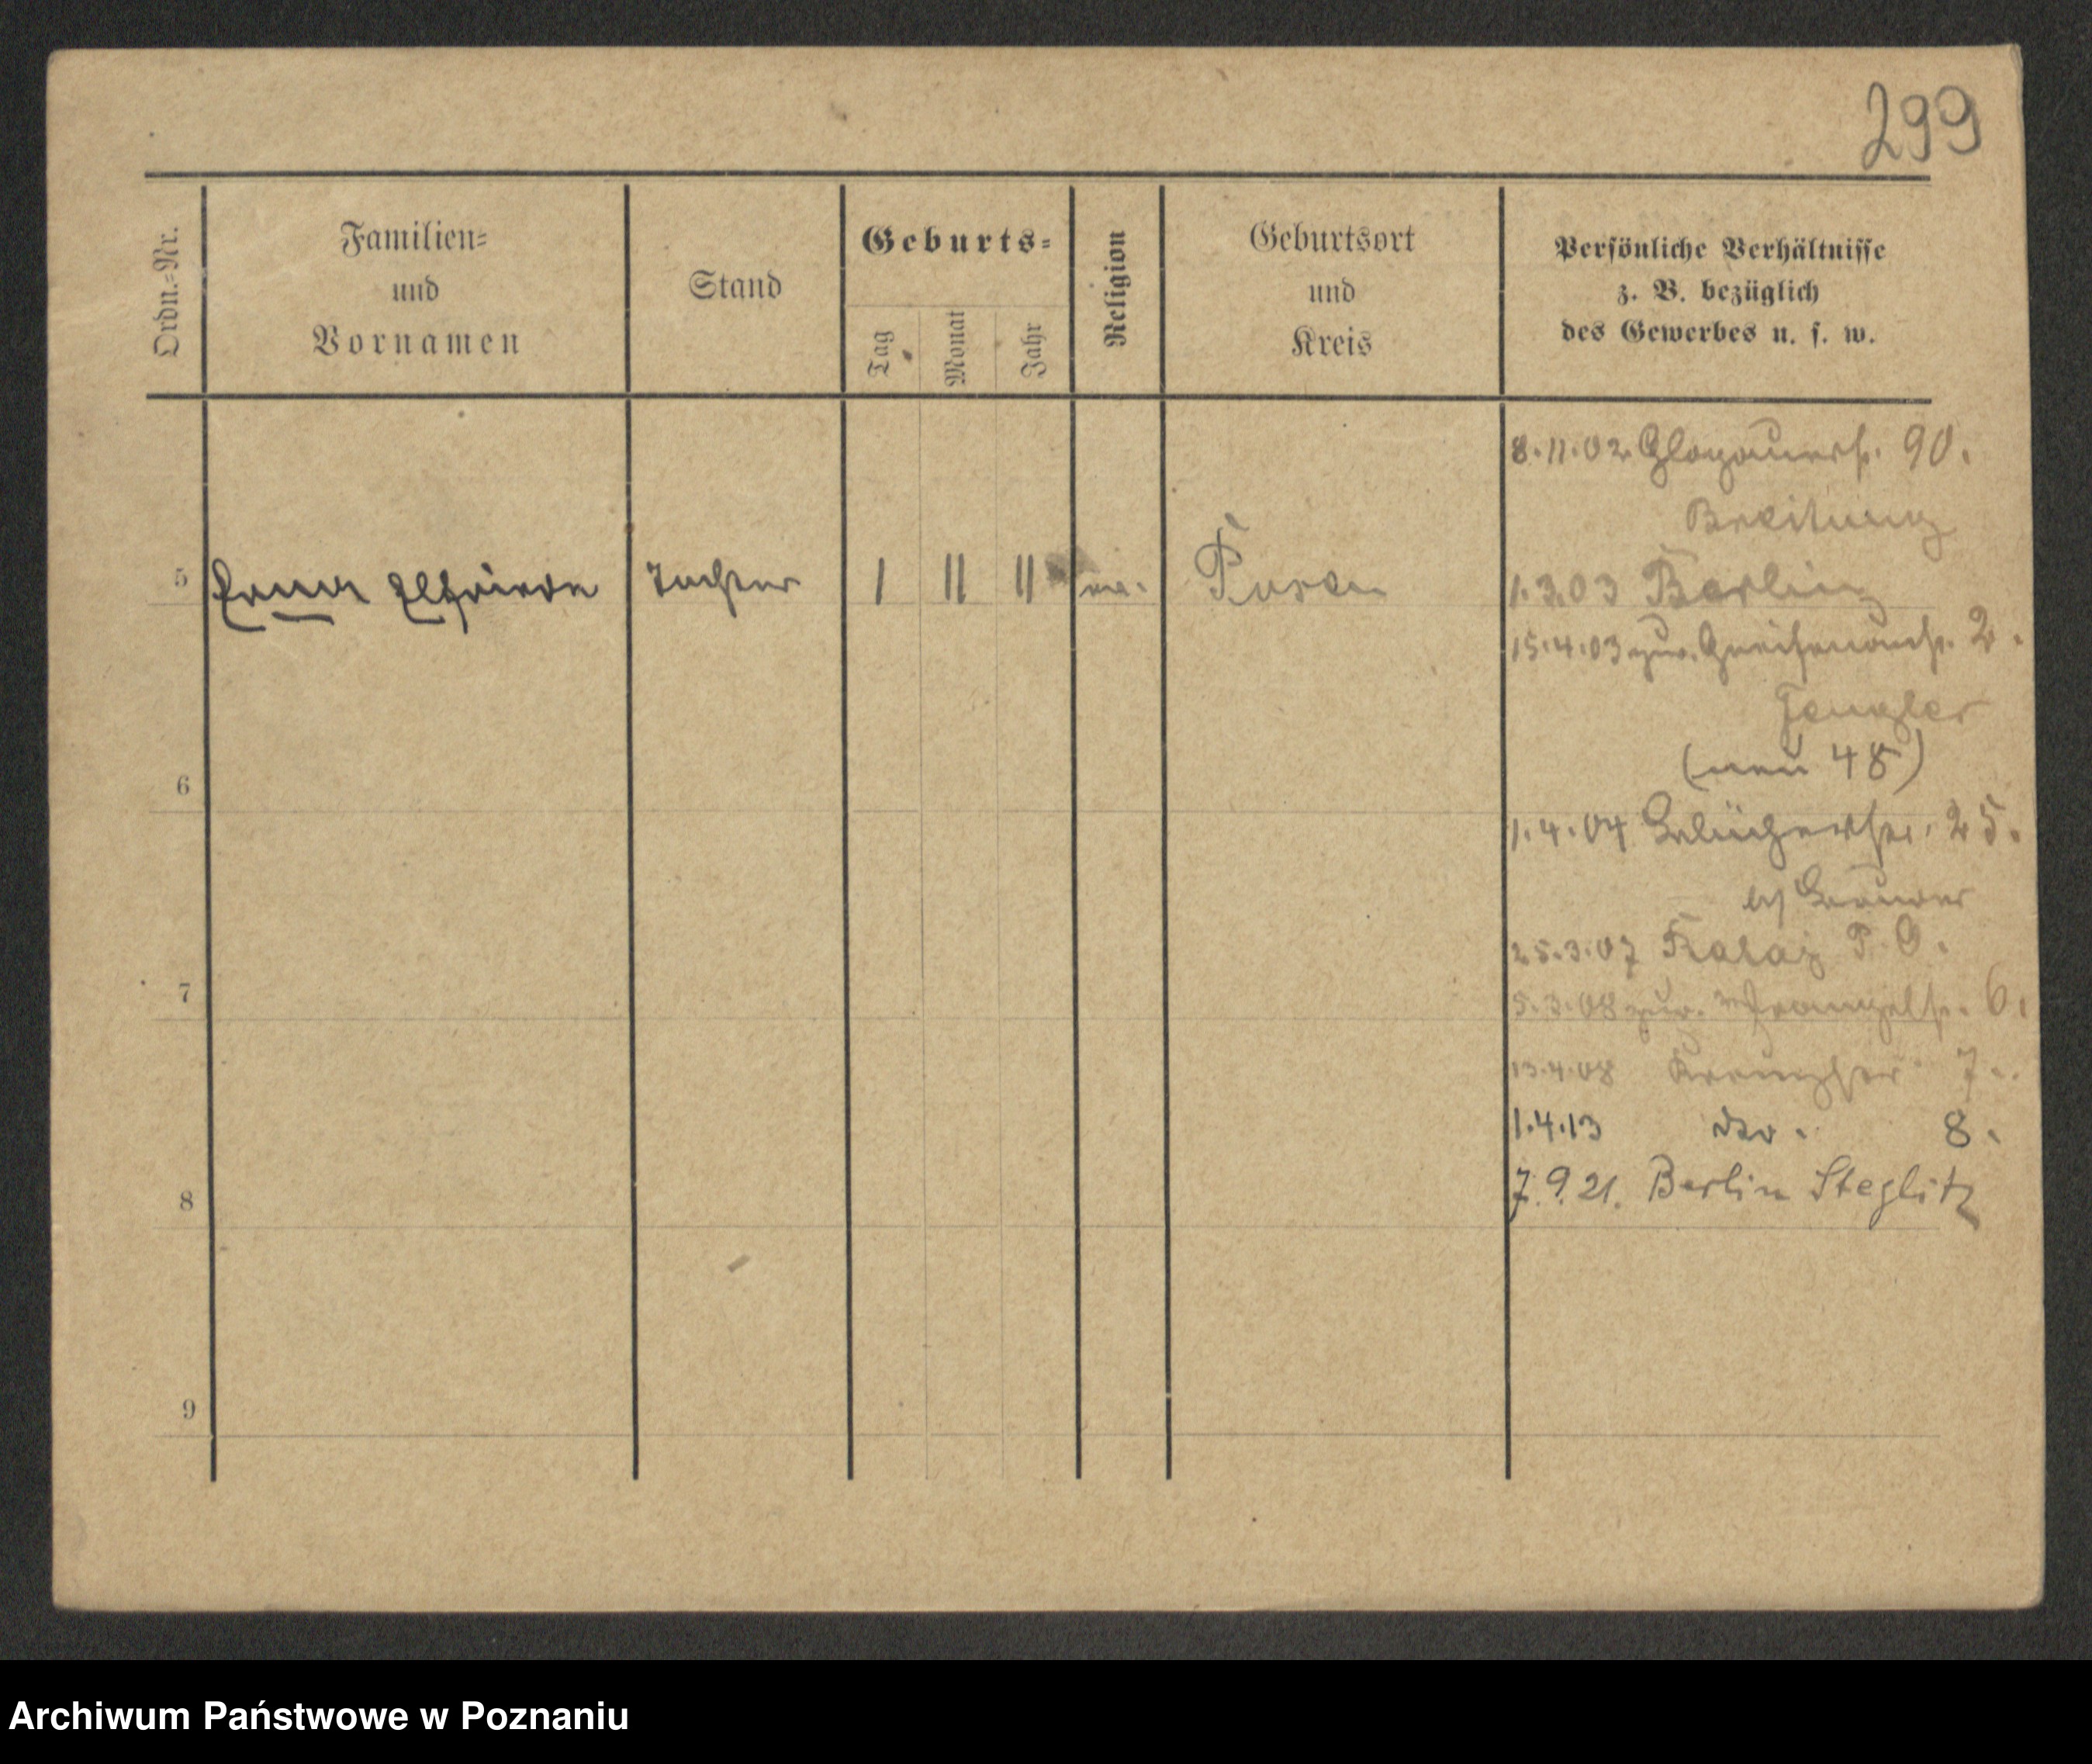 299
Ordn.=Nr.
Familien=
und
Vornamen
Stand
Geburts=
Tag
Monat
Jahr
Religion
Geburtsort
und
Kreis
Persönliche Verhältnisse
z. B. bezüglich
des Gewerbes u. s. w.
8.11.02 Glogauerstr. 90.
Breitung
5 Erna Elfriede Tochter 1 11 11 ev. Posen 1.3.03 Berlin
15.4.03 zur. 2.
Gengler
(neu 48)
6
1.4.04 Blücherstr. 25.
b/
25.3.07 P. O.
7
5.3.08 zur. Wrangelstr. 6.
13.4.08 7.
1.4.13 dto. 8.
8
7.9.21. Berlin Steglitz
9
Archiwum Państwowe w Poznaniu